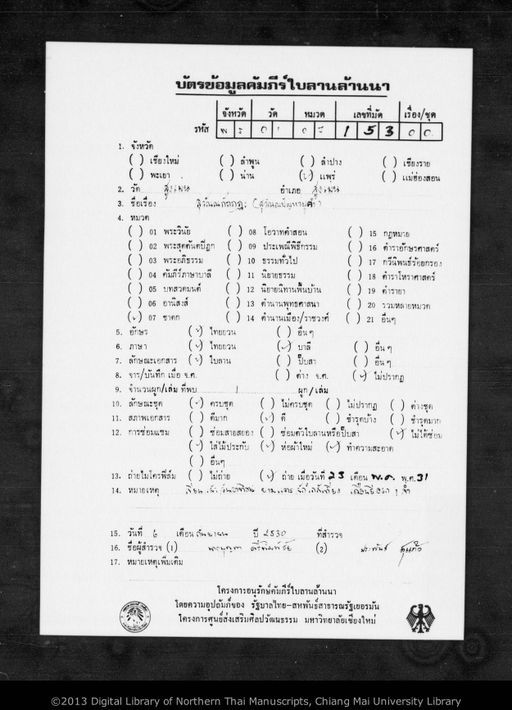 บัตรข้อมูลคัมภีร์ใบลานล้านนา
จังหวัด วัด หมวด เลขที่มัด เรื่อง/ชุด
รหัส พ ร 0 1 0 7 1 5 3 0 0
1. จังหวัด
( ) เชียงใหม่ ( ) ลำพูน ( ) ลำปาง ( ) เชียงราย
( ) พะเยา ( ) น่าน (✓) แพร่ ( ) แม่ฮ่องสอน
2. วัด สูงเม่น อำเภอ สูงเม่น
3. ชื่อเรื่อง
4. หมวด
( ) 01 พระวินัย ( ) 08 โอวาทคำสอน ( ) 15 กฎหมาย
( ) 02 พระสุตตันตปิฎก ( ) 09 ประเพณีพิธีกรรม ( ) 16 ตำราอักษรศาสตร์
( ) 03 พระอภิธรรม ( ) 10 ธรรมทั่วไป ( ) 17 กวีนิพนธ์ร้อยกรอง
( ) 04 คัมภีร์ภาษาบาลี ( ) 11 นิยายธรรม ( ) 18 ตำราโหราศาสตร์
( ) 05 บทสวดมนต์ ( ) 12 นิยายนิทานพื้นบ้าน ( ) 19 ตำรายา
( ) 06 อานิสงส์ ( ) 13 ตำนานพุทธศาสนา ( ) 20 รวมหลายหมวด
(✓) 07 ชาดก ( ) 14 ตำนานเมือง/ราชวงศ์ ( ) 21 อื่นๆ
5. อักษร (✓) ไทยยวน ( ) อื่นๆ
6. ภาษา (✓) ไทยยวน (✓) บาลี ( ) อื่นๆ
7. ลักษณะเอกสาร (✓) ใบลาน ( ) ปั๊บสา ( ) อื่นๆ
8. จาร/บันทึก เมื่อ จ.ศ. ( ) ค่าง จ.ศ. (✓) ไม่ปรากฏ
9. จำนวนผูก/เล่ม ที่พบ 1 ผูก/เล่ม
10. ลักษณะชุด (✓) ครบชุด ( ) ไม่ครบชุด ( ) ไม่ปรากฏ ( ) ต่างชุด
11. สภาพเอกสาร ( ) ดีมาก (✓) ดี ( ) ชำรุดบ้าง ( ) ชำรุดมาก
12. การซ่อมแซม ( ) ซ่อมสายสยอง ( ) ซ่อมตัวใบลานหรือปั๊บสา (✓) ไม่ได้ซ่อม
(✓) ใส่ไม้ประกับ (✓) ห่อผ้าใหม่ (✓) ทำความสะอาด
( ) อื่นๆ
13. ถ่ายไมโครฟิล์ม ( ) ไม่ถ่าย (✓) ถ่าย เมื่อวันที่ 23 เดือน พ.ค. พ.ศ. 31
14. หมายเหตุ
15. วันที่ 6 เดือน ปี 2530 ที่สำรวจ
16. ชื่อผู้สำรวจ (1) (2)
17. หมายเหตุเพิ่มเติม
โครงการอนุรักษ์คัมภีร์ใบลานล้านนา
โดยความอุปถัมภ์ของ รัฐบาลไทย-สหพันธ์สาธารณรัฐเยอรมัน
โครงการศูนย์ส่งเสริมศิลปวัฒนธรรม มหาวิทยาลัยเชียงใหม่
©2013 Digital Library of Northern Thai Manuscripts, Chiang Mai University Library